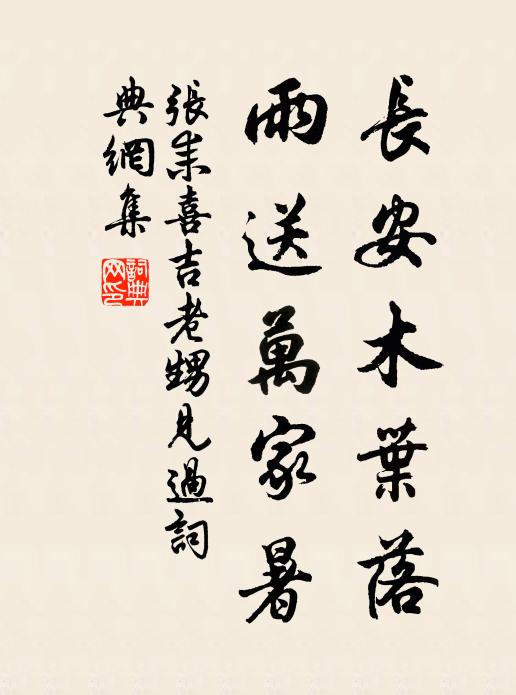 長安木葉落
雨送萬家暑
張耒喜吉老甥見過詞
典網集
詞典
网印